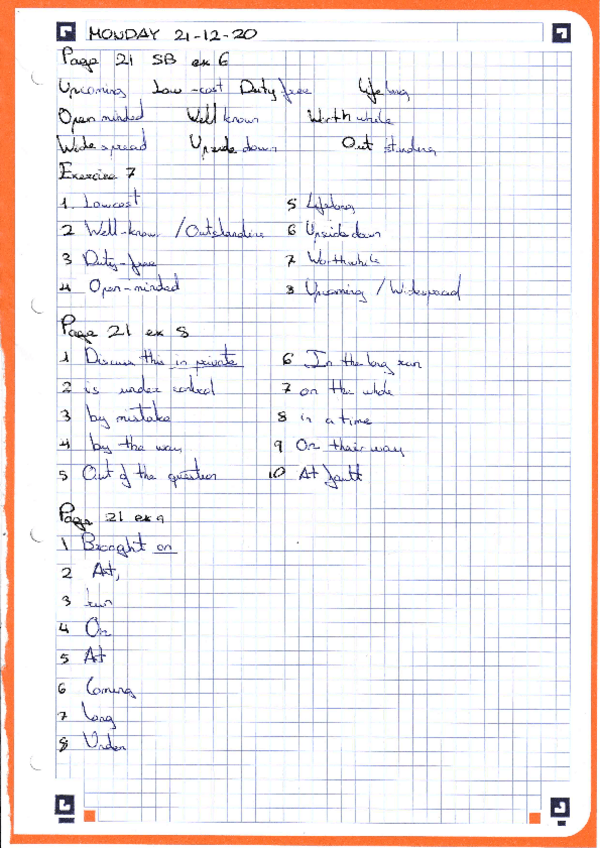 MONDAY 21-12-20
Page 21 SB ex 6
Upcoming Low-cost Duty free Lifelong
Open minded Well known Worth while
Wide spread Upside down Out standing
Exercise 7
1. Lowcost 5 Lifelong
2 Well-known / Outstanding 6 Upside down
3 Duty-free 7 Worthwhile
4 Open-minded 8 Upcoming / Widespread
Page 21 ex 8
1 Discuss this in private 6 In the long run
2 is under control 7 on the whole
3 by mistake 8 is a time
4 by the way 9 On their way
5 Out of the question 10 At fault
Page 21 ex 9
1 Brought on
2 At,
3 run
4 On
5 At
6 Coming
7 Long
8 Under